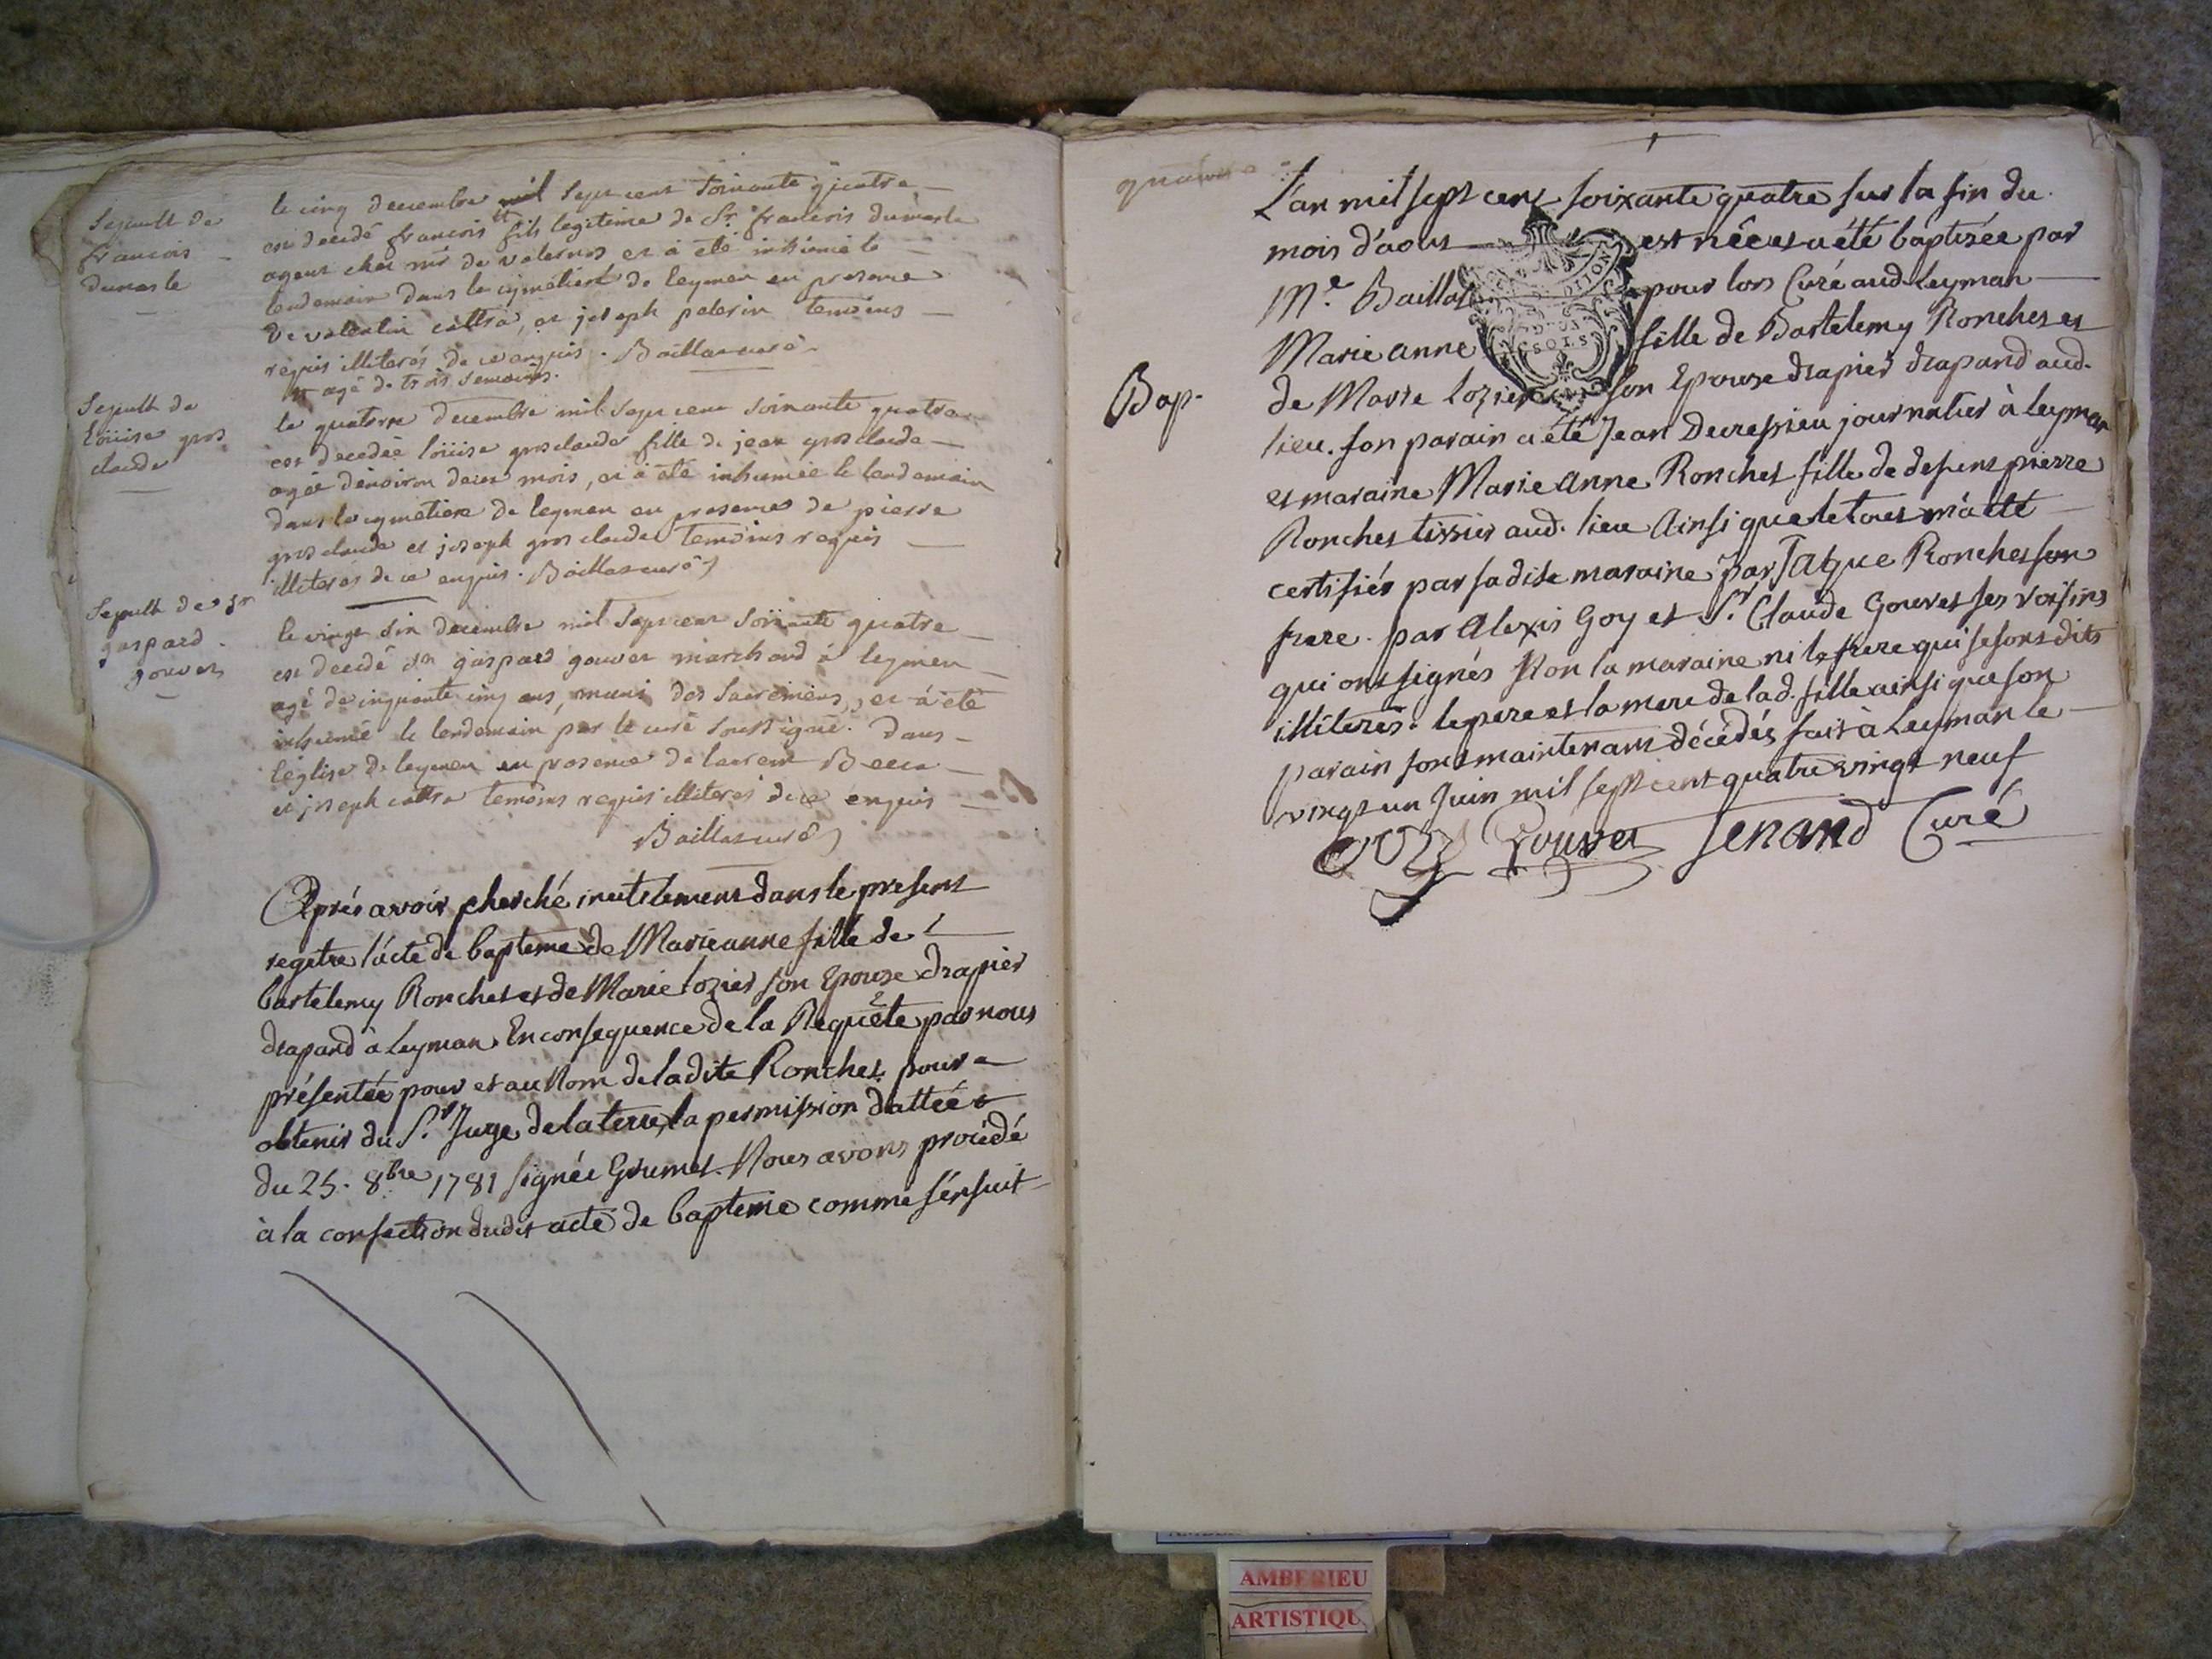 Sepult de
francois
dumarle
le cinq decembre mil sept cent soixante quatre
est decedé francois fils legitime de Sr. francois dumarle
agent chés mr de valernos et à eté inhumé le
lendemain dans le cymetiere de leymen en presence
de valentin cottra, et joseph pelerin temoins
requis illiterés de ce enquis. Baillat curé
agé de trois semaines.
Sepult de
loüise gros
claude
le quatorze decembre mil sept cent soixante quatre
est decedée loüise grosclaude fille de jean grosclaude
agée denviron deux mois, et à eté inhumée le lendemain
dans le cymetiere de leymen en presence de pierre
grosclaude et joseph grosclaude temoins requis
illiterés de ce enquis. Baillat curé
Sepult de sr
gaspard
gouvet
le vingt six decembre mil sept cent soixante quatre
est decedé sr gaspard gouvet marchand à leymen
agé de cinquante cinq ans, muni des sacremens, et à eté
inhumé le lendemain par le curé soussigné. Dans
l'église de leymen en presence de laurent Becca
et joseph cottra temoins requis illiterés de ce enquis
Baillat curé
Aprés avoir cherché inutilement dans le present
regitre l'acte de bapteme de Marieanne fille de
bartelemy Ronchet et de Marie lozier son Epouze drapier
drapand à Leyman. En consequence de la Requête par nous
présentée pour et au Nom de ladite Ronchet pour
obtenir du Sr. Juge de la terre, la permission dattée
du 25. 8bre 1781 signée Grumet. Nous avons procédé
à la confection dudit acte de bapteme comme s'ensuit
L'an mil sept cent soixante quatre sur la fin du
mois d'aout est née et a été baptizée par
Me. Baillat pour lors Curé aud. Leyman
Marie anne fille de Bartelemy Ronchet et
Bap.
de Marie lozier son Epouze drapier drapand aud.
lieu. son parain a été Jean Decrepieu journalier à leyman
et maraine Marie Anne Ronchet fille de defunt pierre
Ronchet tissier aud. lieu Ainsi que le tout m'a été
certifiés par sadite maraine par Jaque Ronchet son
frere. par Alexis Goy et Sr. Claude Gouvet ses voisins
qui ont signés Non la maraine ni le frere qui se sont dits
illiterés. le pere et la mere de lad. fille ainsi que son
parain sont maintenant décédés fait à Leyman le
vingt un Juin mil sept cent quatre vingt neuf
GOY Gouvet Senand Curé
DIJON
SOLS
AMBERIEU
ARTISTIQU